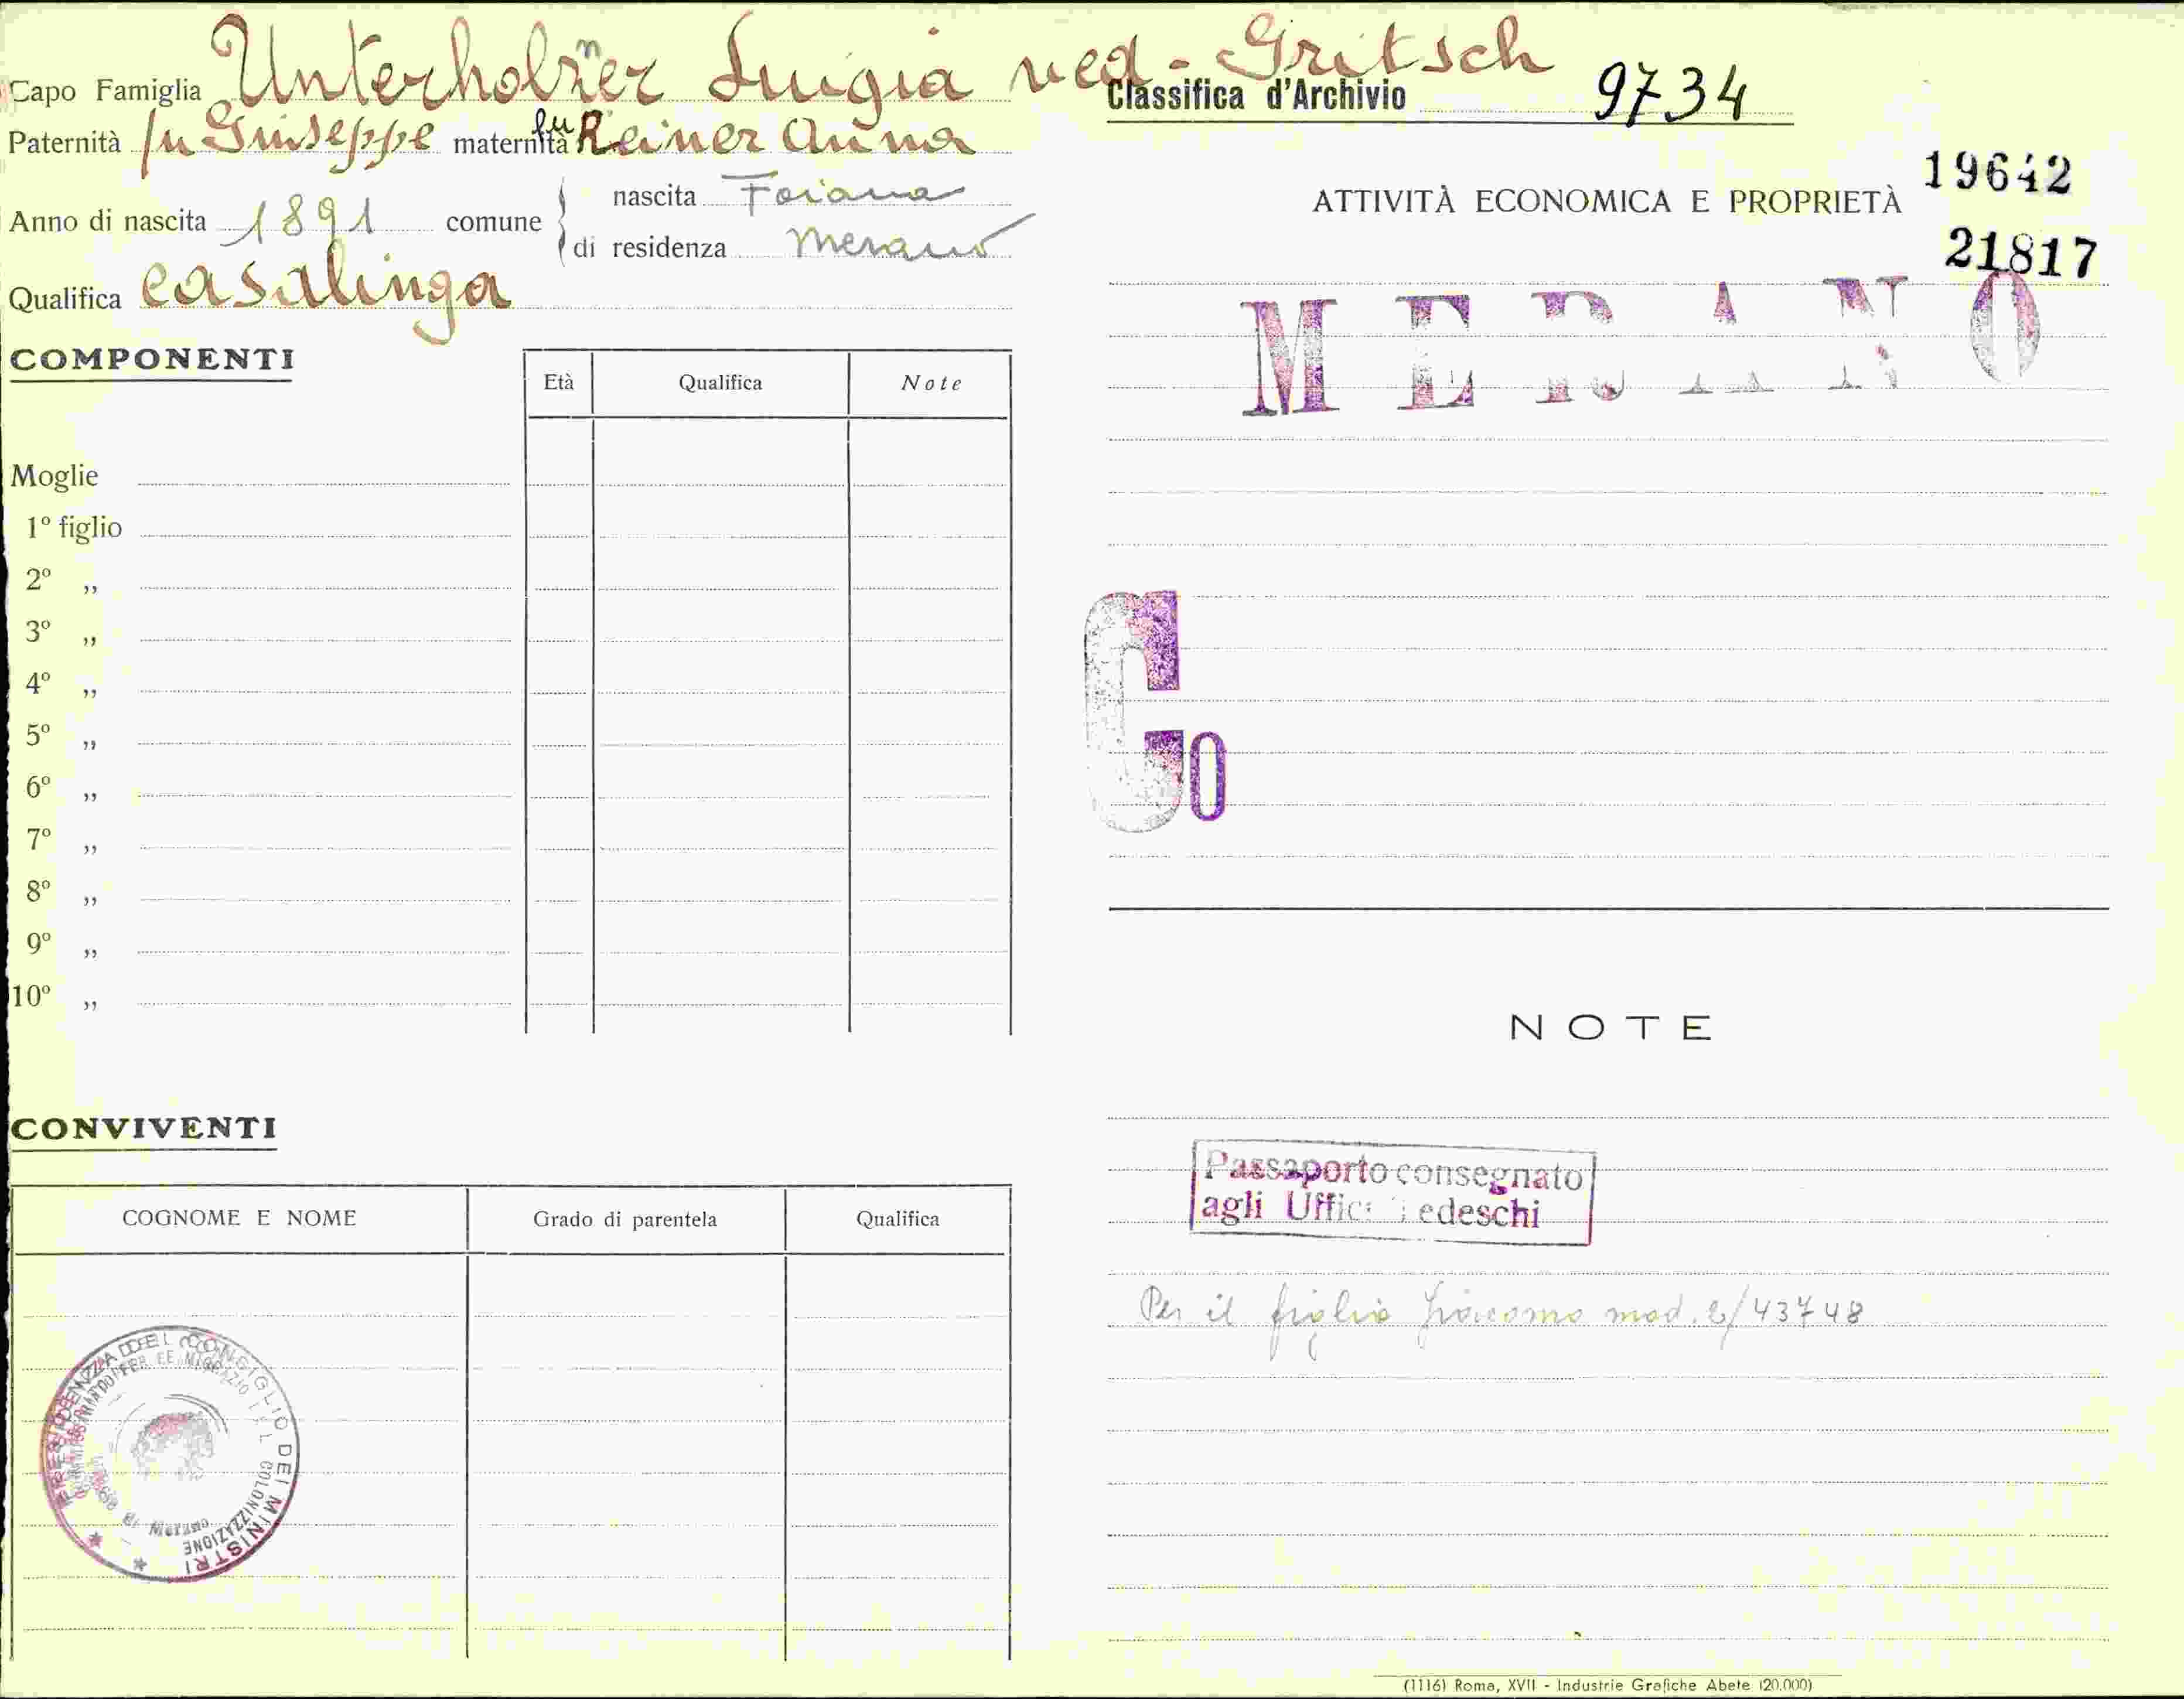 Capo Famiglia Unterholzner Luigia ved. Gritsch
Paternità fu Giuseppe maternità fu Reiner Anna
Anno di nascita 1891 comune
nascita Foiana
di residenza Merano
Qualifica casalinga
COMPONENTI
Età Qualifica Note
Moglie
1º figlio
2º „
3º „
4º „
5º „
6º „
7º „
8º „
9º „
10º „
CONVIVENTI
COGNOME E NOME Grado di parentela Qualifica
PRESIDENZA DEL CONSIGLIO DEI MINISTRI
di Merano
Classifica d'Archivio 9734
19642
ATTIVITÀ ECONOMICA E PROPRIETÀ
21817
MERANO
G0
NOTE
Passaporto consegnato
agli Uffici Tedeschi
Per il figlio Giacomo mod. 2/43748
(1116) Roma, XVII - Industrie Grafiche Abete (20.000)